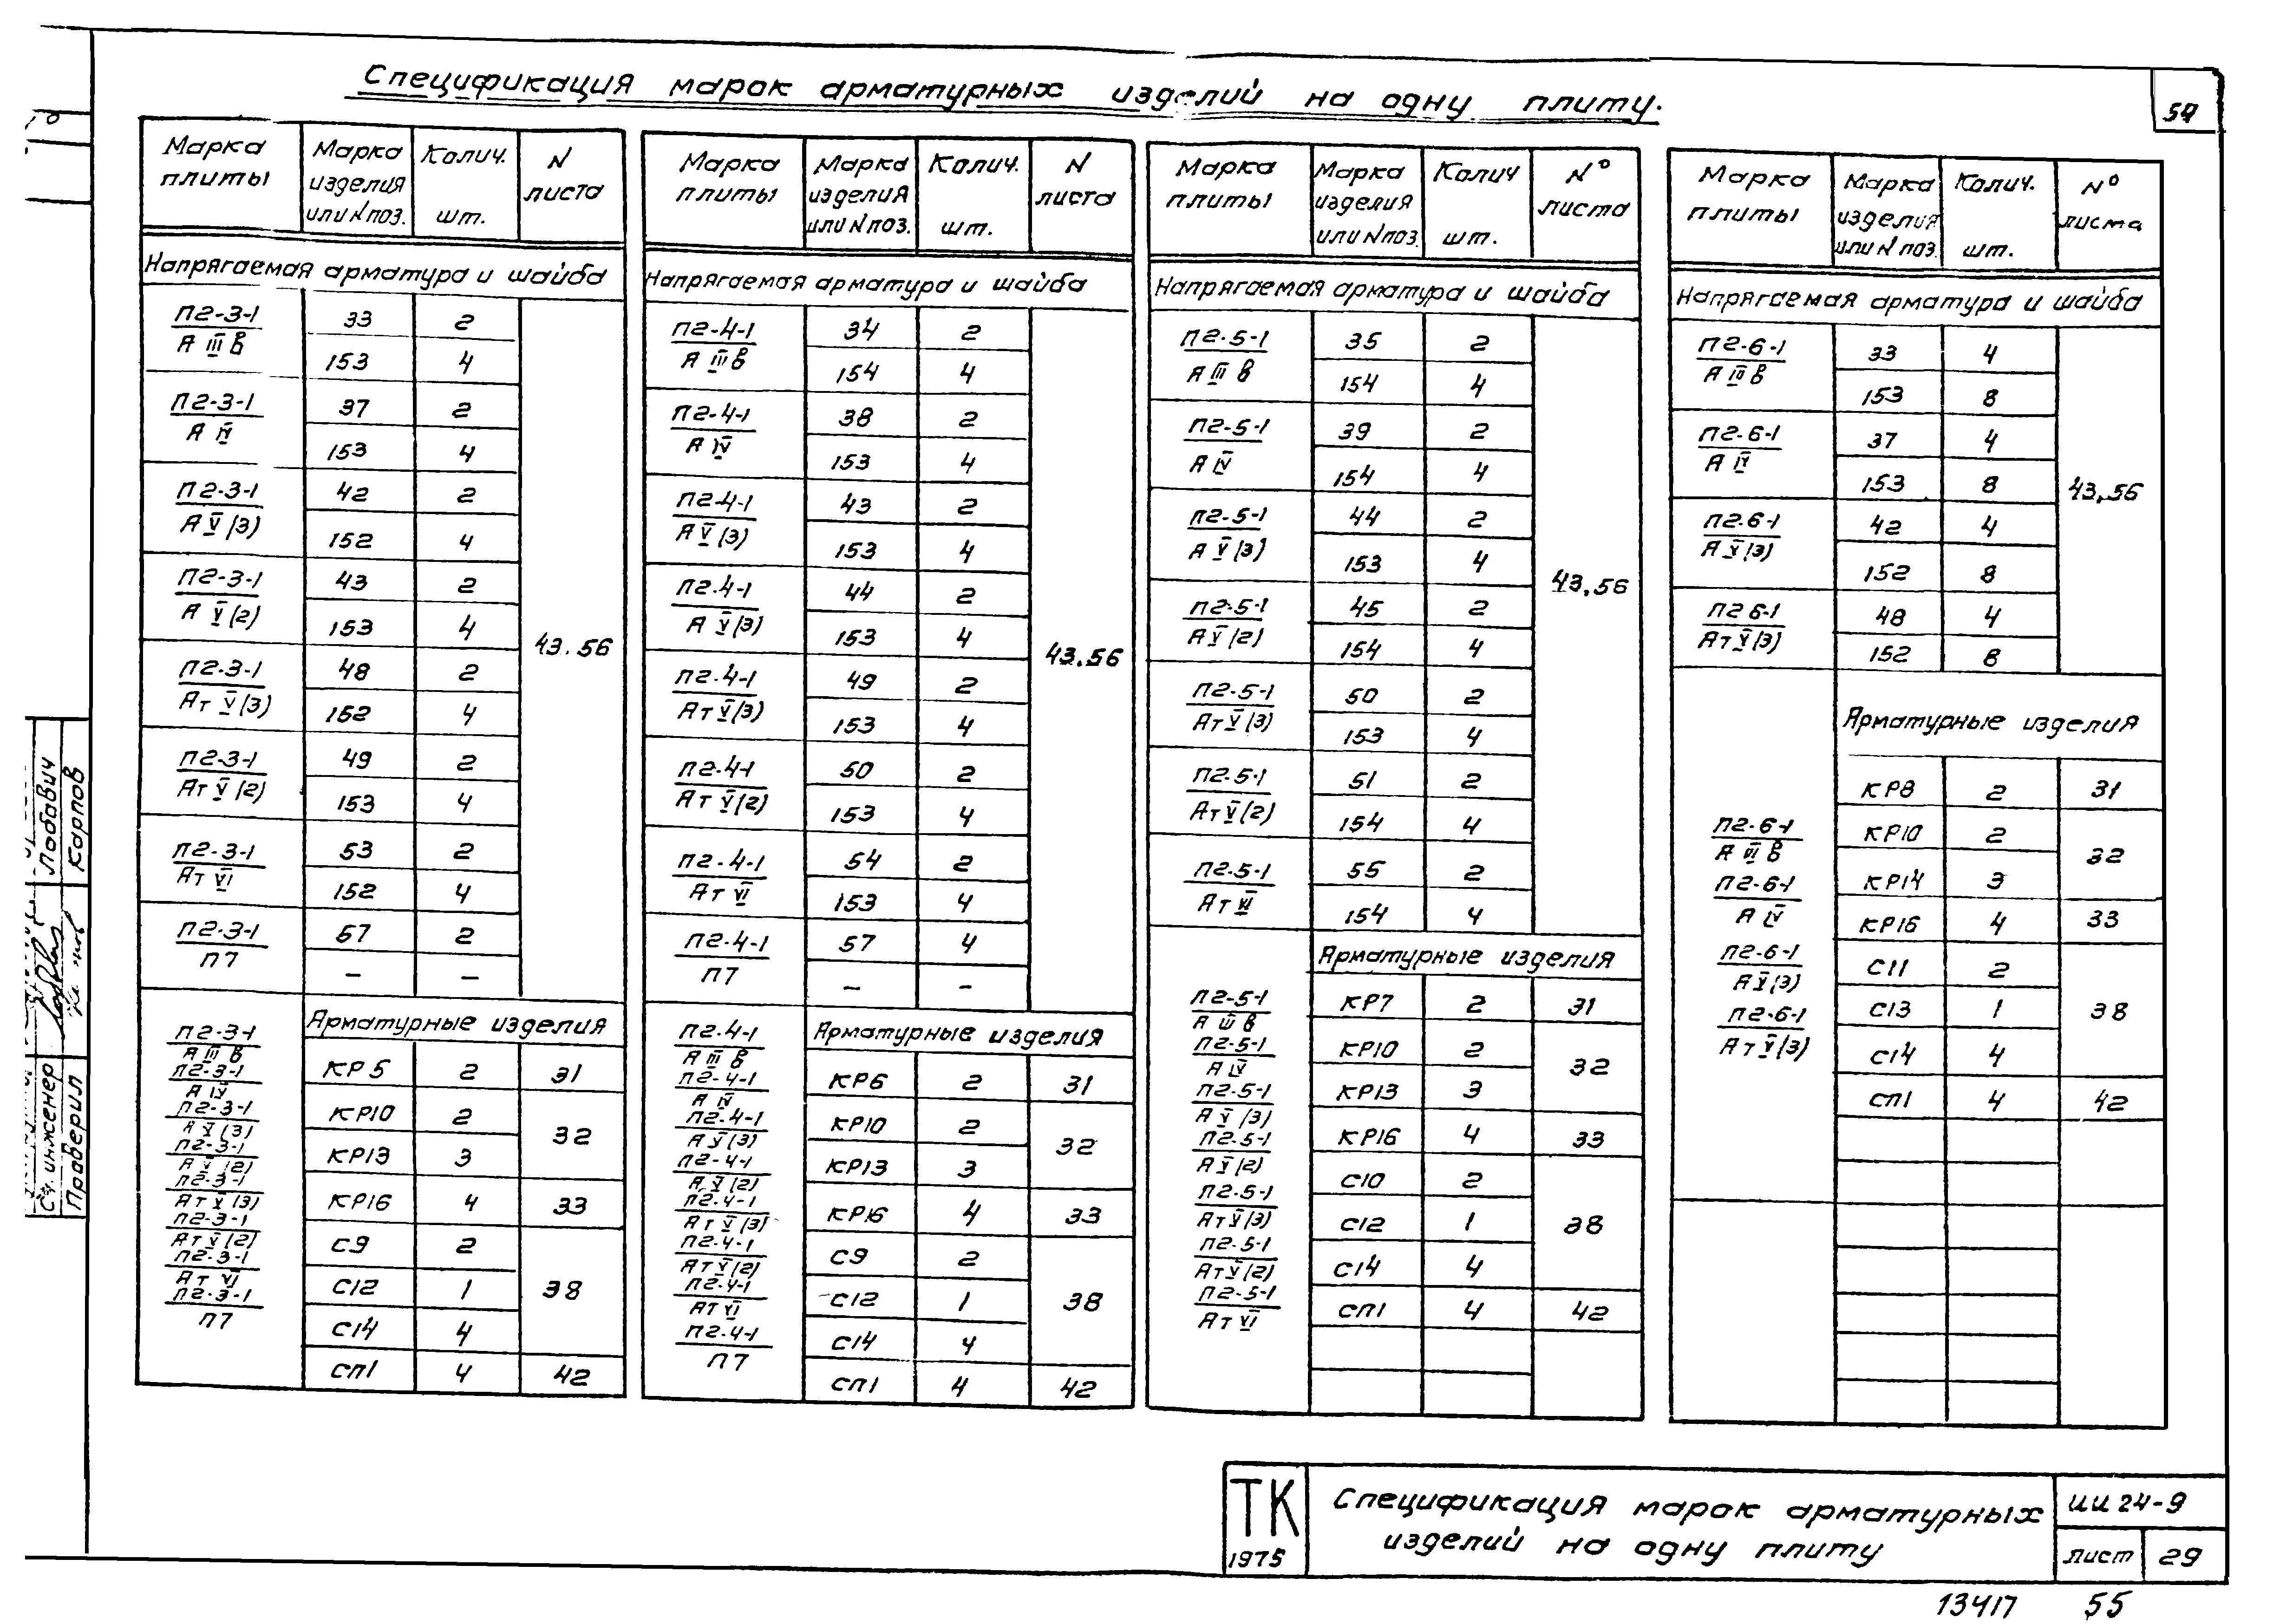 Спецификация марок арматурных изделий на одну плиту.
Марка плиты | Марка изделия или N поз. | Колич. шт. | N листа
Напрягаемая арматура и шайба
П2-3-1 / А III в | 33 | 2 | 43.56
153 | 4
П2-3-1 / А IV | 37 | 2
153 | 4
П2-3-1 / А V (3) | 42 | 2
152 | 4
П2-3-1 / А V (2) | 43 | 2
153 | 4
П2-3-1 / Ат V (3) | 48 | 2
152 | 4
П2-3-1 / Ат V (2) | 49 | 2
153 | 4
П2-3-1 / Ат VI | 53 | 2
152 | 4
П2-3-1 / П7 | 57 | 2
– | –
П2-3-1 / А III в
П2-3-1 / А IV
П2-3-1 / А V (3)
П2-3-1 / А V (2)
П2-3-1 / Ат V (3)
П2-3-1 / Ат V (2)
П2-3-1 / Ат VI
П2-3-1 / П7
Арматурные изделия
КР5 | 2 | 31
КР10 | 2 | 32
КР13 | 3
КР16 | 4 | 33
С9 | 2 | 38
С12 | 1
С14 | 4
СП1 | 4 | 42
Марка плиты | Марка изделия или N поз. | Колич. шт. | N листа
Напрягаемая арматура и шайба
П2-4-1 / А III в | 34 | 2 | 43.56
154 | 4
П2-4-1 / А IV | 38 | 2
153 | 4
П2-4-1 / А V (3) | 43 | 2
153 | 4
П2-4-1 / А V (3) | 44 | 2
153 | 4
П2-4-1 / Ат V (3) | 49 | 2
153 | 4
П2-4-1 / Ат V (2) | 50 | 2
153 | 4
П2-4-1 / Ат VI | 54 | 2
153 | 4
П2-4-1 / П7 | 57 | 4
– | –
П2-4-1 / А III в
П2-4-1 / А IV
П2-4-1 / А V (3)
П2-4-1 / А V (2)
П2-4-1 / Ат V (3)
П2-4-1 / Ат V (2)
П2-4-1 / Ат VI
П2-4-1 / П7
Арматурные изделия
КР6 | 2 | 31
КР10 | 2 | 32
КР13 | 3
КР16 | 4 | 33
С9 | 2 | 38
С12 | 1
С14 | 4
СП1 | 4 | 42
Марка плиты | Марка изделия или N поз. | Колич шт. | N° листа
Напрягаемая арматура и шайба
П2-5-1 / А III в | 35 | 2 | 43.56
154 | 4
П2-5-1 / А IV | 39 | 2
154 | 4
П2-5-1 / А V (3) | 44 | 2
153 | 4
П2-5-1 / А V (2) | 45 | 2
154 | 4
П2-5-1 / Ат V (3) | 50 | 2
153 | 4
П2-5-1 / Ат V (2) | 51 | 2
154 | 4
П2-5-1 / Ат VI | 55 | 2
154 | 4
П2-5-1 / А III в
П2-5-1 / А IV
П2-5-1 / А V (3)
П2-5-1 / А V (2)
П2-5-1 / Ат V (3)
П2-5-1 / Ат V (2)
П2-5-1 / Ат VI
Арматурные изделия
КР7 | 2 | 31
КР10 | 2 | 32
КР13 | 3
КР16 | 4 | 33
С10 | 2 | 38
С12 | 1
С14 | 4
СП1 | 4 | 42
Марка плиты | Марка изделия или N поз. | Колич. шт. | N° листа
Напрягаемая арматура и шайба
П2-6-1 / А III в | 33 | 4 | 43.56
153 | 8
П2-6-1 / А IV | 37 | 4
153 | 8
П2-6-1 / А V (3) | 42 | 4
152 | 8
П2 6-1 / Ат V (3) | 48 | 4
152 | 8
П2-6-1 / А III в
П2-6-1 / А IV
П2-6-1 / А V (3)
П2-6-1 / Ат V (3)
Арматурные изделия
КР8 | 2 | 31
КР10 | 2 | 32
КР14 | 3
КР16 | 4 | 33
С11 | 2 | 38
С13 | 1
С14 | 4
СП1 | 4 | 42
Ст. инженер Лобович
Проверил Карпов
ТК
1975
Спецификация марок арматурных
изделий на одну плиту
ИИ 24-9
лист 29
13417 55